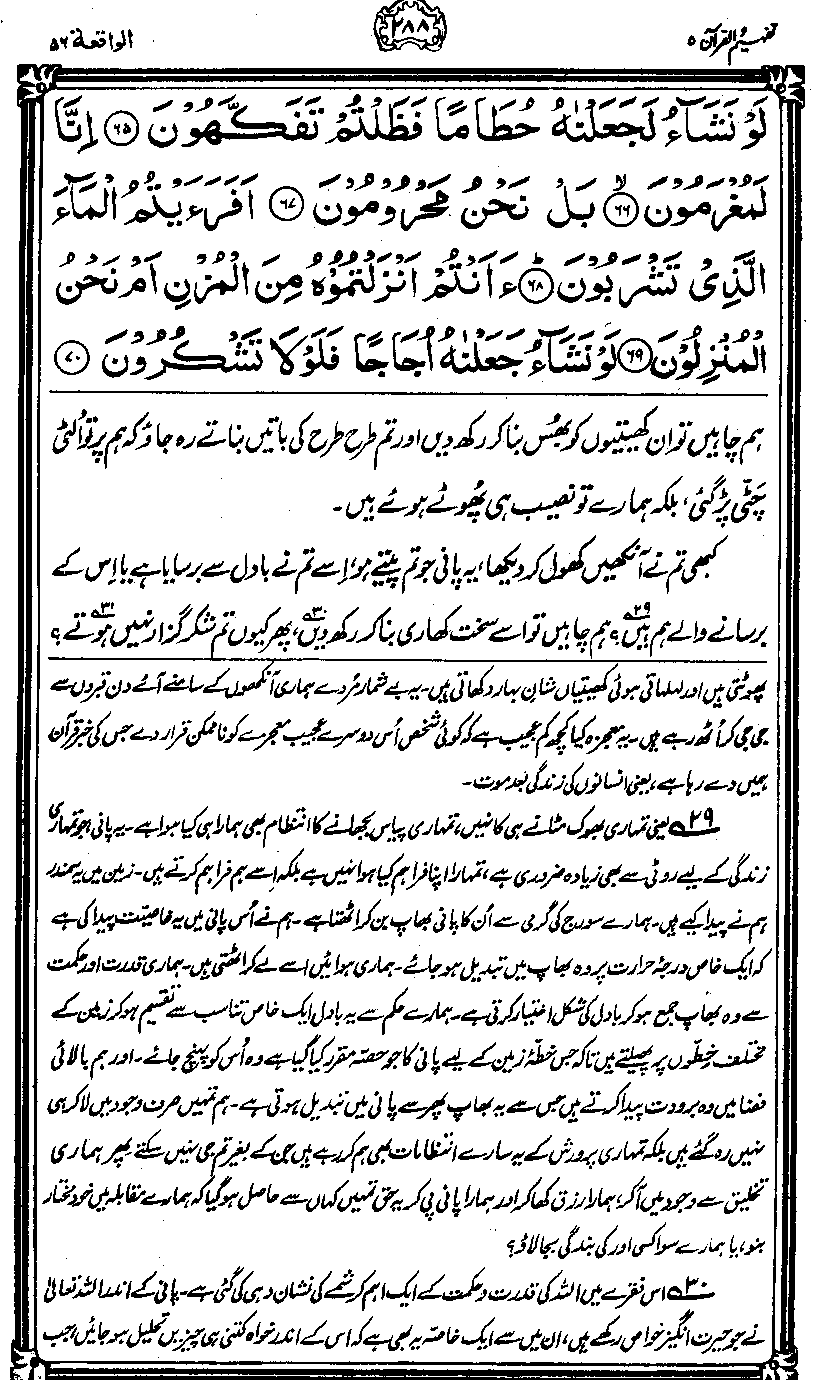 تفہیم القرآن ۵
۲۸۸
الواقعۃ ۵۶
لَوْ نَشَآءُ لَجَعَلْنٰهُ حُطَامًا فَظَلْتُمْ تَفَكَّهُوْنَ ﴿۶۵﴾ اِنَّا
لَمُغْرَمُوْنَ ﴿۶۶﴾ۙ بَلْ نَحْنُ مَحْرُوْمُوْنَ ﴿۶۷﴾ اَفَرَءَيْتُمُ الْمَآءَ
الَّذِيْ تَشْرَبُوْنَ ﴿۶۸﴾ؕ ءَاَنْتُمْ اَنْزَلْتُمُوْهُ مِنَ الْمُزْنِ اَمْ نَحْنُ
الْمُنْزِلُوْنَ ﴿۶۹﴾ لَوْ نَشَآءُ جَعَلْنٰهُ اُجَاجًا فَلَوْلَا تَشْكُرُوْنَ ﴿۷۰﴾
ہم چاہیں تو ان کھیتیوں کو بھُس بنا کر رکھ دیں اور تم طرح طرح کی باتیں بناتے رہ جاؤ کہ ہم پر تو اُلٹی
چَٹی پڑ گئی، بلکہ ہمارے تو نصیب ہی پھُوٹے ہوئے ہیں۔
کبھی تم نے آنکھیں کھول کر دیکھا، یہ پانی جو تم پیتے ہو، اِسے تم نے بادل سے برسایا ہے یا اِس کے
برسانے والے ہم ہیں؟۲۹ ہم چاہیں تو اسے سخت کھاری بنا کر رکھ دیں۳۰، پھر کیوں تم شکر گزار نہیں ہوتے۳۱؟
پھوٹتی ہیں اور لہلہاتی ہوئی کھیتیاں شانِ بہار دکھاتی ہیں۔ یہ بے شمار مُردے ہماری آنکھوں کے سامنے آئے دن قبروں سے
جی جی کر اُٹھ رہے ہیں۔ یہ معجزہ کیا کچھ کم عجیب ہے کہ کوئی شخص اُس دوسرے عجیب معجزے کو ناممکن قرار دے جس کی خبر قرآن
ہمیں دے رہا ہے، یعنی انسانوں کی زندگی بعد موت۔
۲۹ یعنی تمہاری بھوک مٹانے ہی کا نہیں، تمہاری پیاس بجھانے کا انتظام بھی ہمارا ہی کیا ہوا ہے۔ یہ پانی، جو تمہاری
زندگی کے لیے روٹی سے بھی زیادہ ضروری ہے، تمہارا اپنا فراہم کیا ہوا نہیں ہے بلکہ اِسے ہم فراہم کرتے ہیں۔ زمین میں یہ سمندر
ہم نے پیدا کیے ہیں۔ ہمارے سورج کی گرمی سے اُن کا پانی بھاپ بن کر اٹھتا ہے۔ ہم نے اُس پانی میں یہ خاصیت پیدا کی ہے
کہ ایک خاص درجۂ حرارت پر وہ بھاپ میں تبدیل ہو جائے۔ ہماری ہوائیں اسے لے کر اٹھتی ہیں۔ ہماری قدرت اور حکمت
سے وہ بھاپ جمع ہو کر بادل کی شکل اختیار کرتی ہے۔ ہمارے حکم سے یہ بادل ایک خاص تناسب سے تقسیم ہو کر زمین کے
مختلف خِطّوں پر پھیلتے ہیں تاکہ جس خطۂ زمین کے لیے پانی کا جو حصّہ مقرر کیا گیا ہے وہ اُس کو پہنچ جائے۔ اور ہم بالائی
فضا میں وہ برودت پیدا کرتے ہیں جس سے یہ بھاپ پھر سے پانی میں تبدیل ہوتی ہے۔ ہم تمہیں صرف وجود میں لا کر ہی
نہیں رہ گئے ہیں بلکہ تمہاری پرورش کے یہ سارے انتظامات بھی ہم کر رہے ہیں جن کے بغیر تم جی نہیں سکتے پھر ہماری
تخلیق سے وجود میں آ کر، ہمارا رزق کھا کر اور ہمارا پانی پی کر یہ حق تمہیں کہاں سے حاصل ہو گیا کہ ہمارے مقابلہ میں خود مختار
بنو، یا ہمارے سوا کسی اور کی بندگی بجا لاؤ؟
۳۰ اس فقرے میں اللہ کی قدرت و حکمت کے ایک اہم کرشمے کی نشان دہی کی گئی ہے۔ پانی کے اندر اللہ تعالیٰ
نے جو حیرت انگیز خواص رکھے ہیں، ان میں سے ایک خاصہ یہ بھی ہے کہ اس کے اندر خواہ کتنی ہی چیزیں تحلیل ہو جائیں، جب